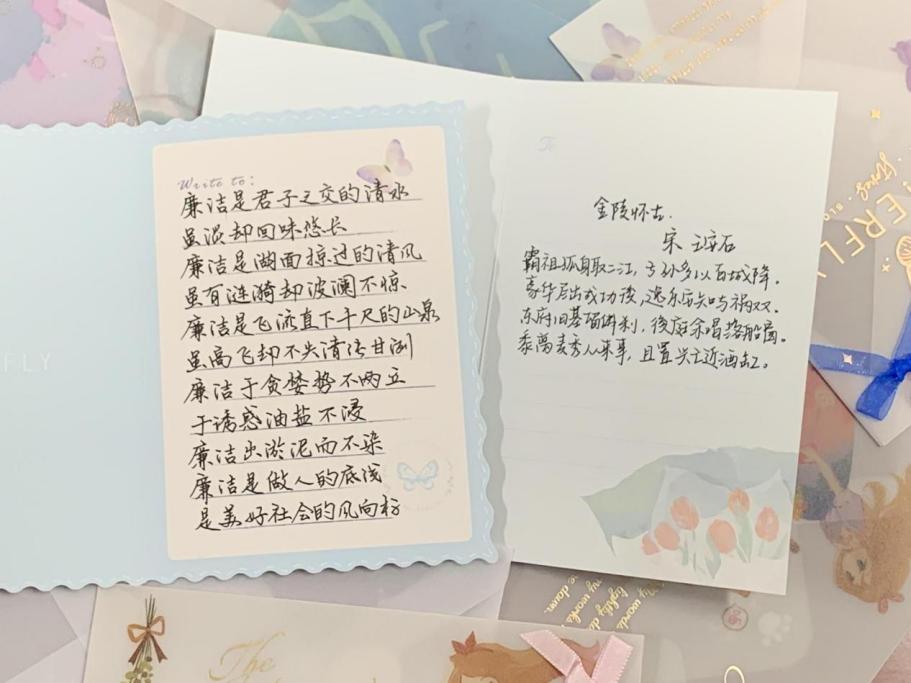 Write to:
廉洁是君子之交的清水
虽淡却回味悠长
廉洁是湖面掠过的清风
虽有涟漪却波澜不惊
廉洁是飞流直下千尺的山泉
虽高飞却不失清洁甘洌
廉洁于贪婪势不两立
于诱惑油盐不浸
廉洁出淤泥而不染
廉洁是做人的底线
是美好社会的风向标
To
金陵怀古.
宋
霸祖孤身取二江,子孙多以百城降。
豪华尽出成功后,逸乐安知与祸双。
东府旧基留佛刹,後庭余唱落船窗。
黍离麦秀从来事,且置兴亡近酒缸。
FLY
ERFLY
The